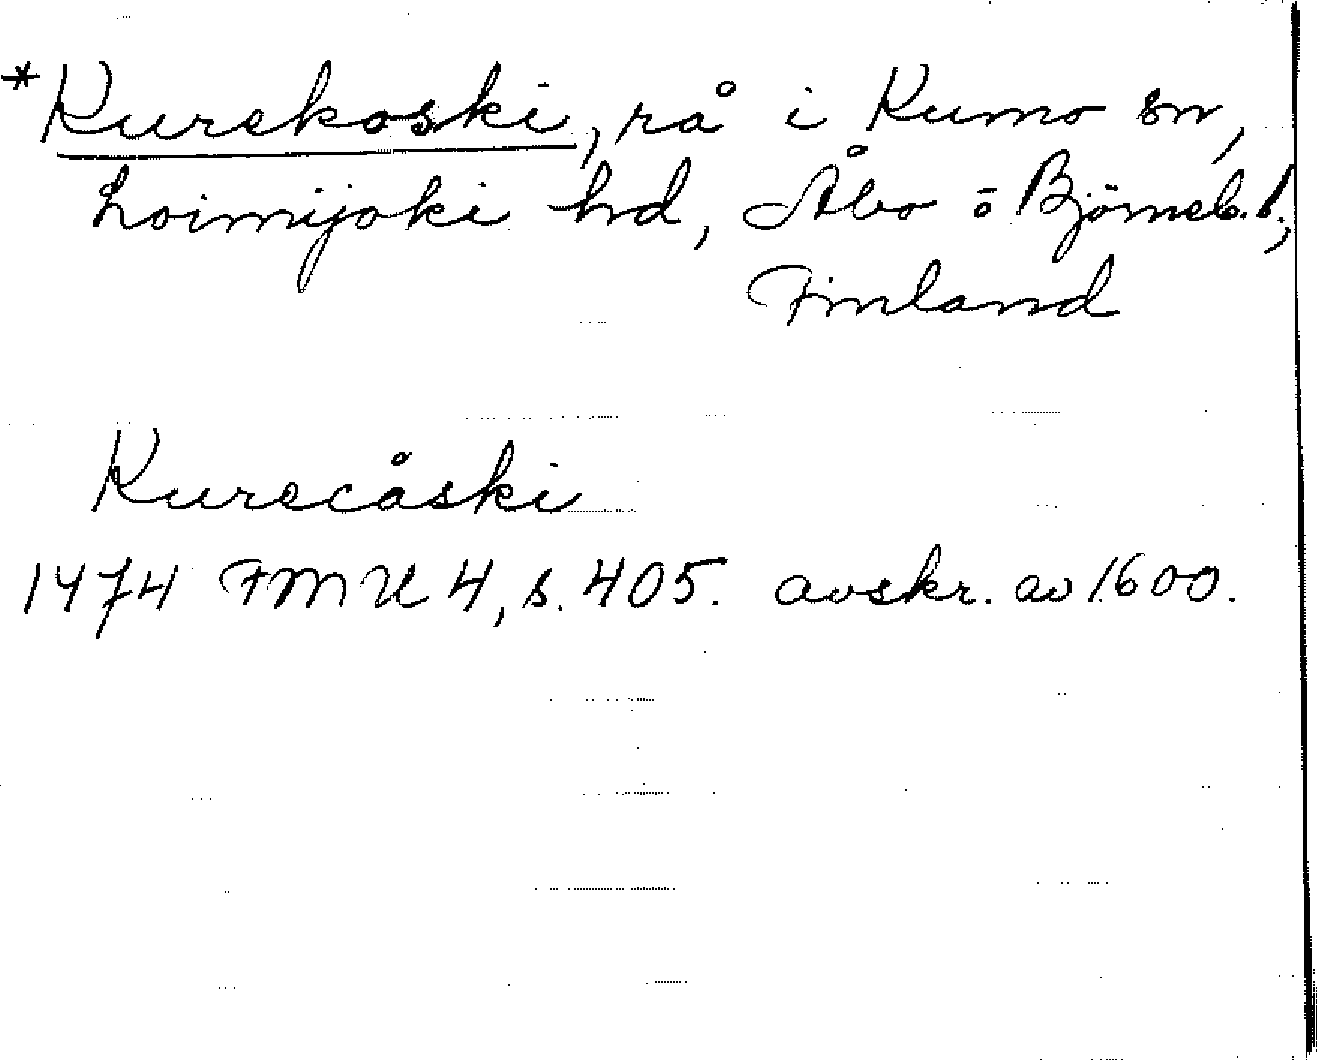 *Kurekoski, rå i Kumo sn,
Loimijoki hd, Åbo o Björneb.l.,
Finland
Kurecåski
1474 FMU 4, s. 405. avskr. av 1600.